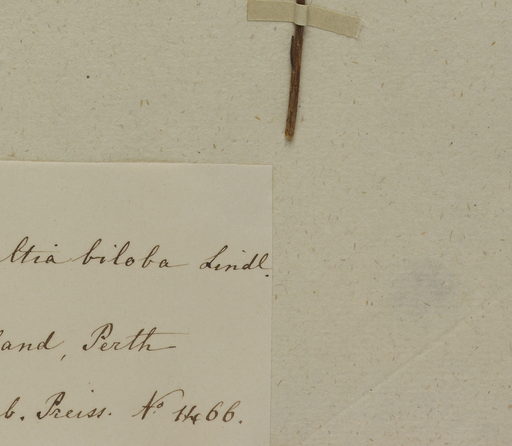 ltia biloba Lindl.
land, Perth
b. Preiss. No 1466.